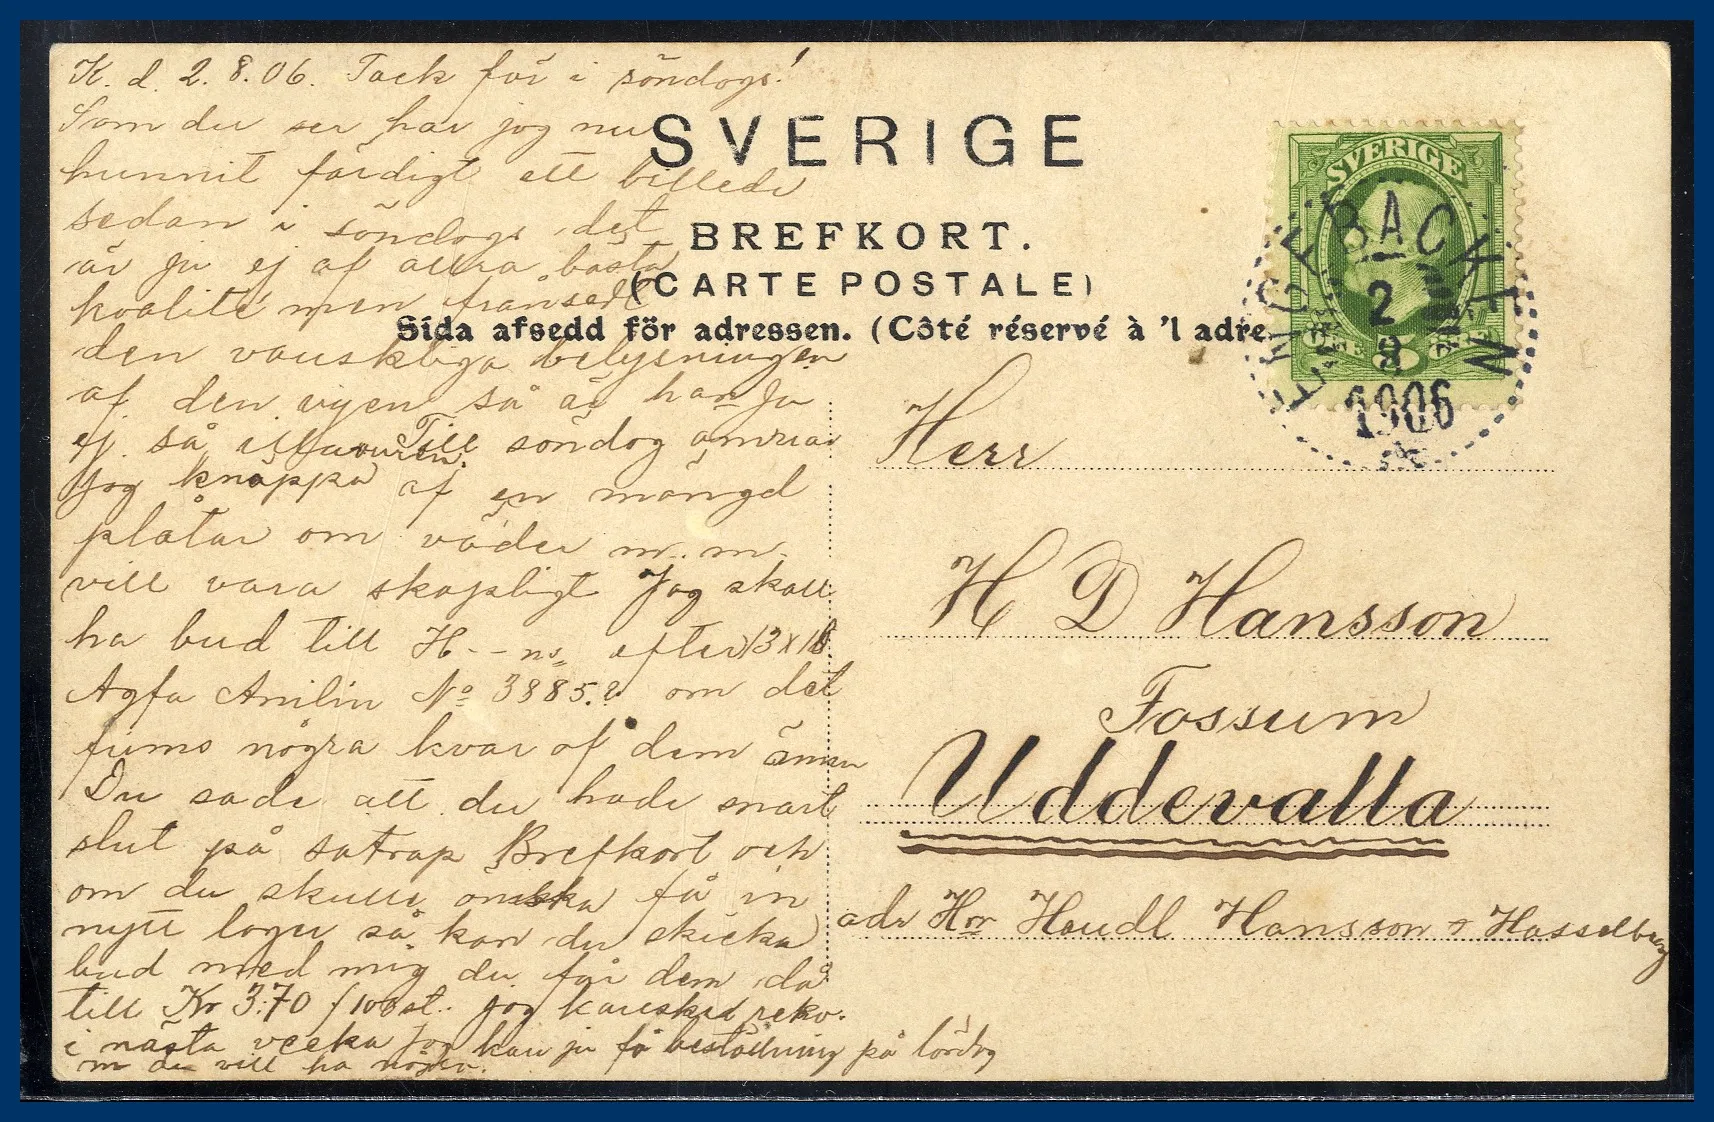 K. d. 2.8.06. Tack för i söndags!
Som du ser har jag nu
hunnit färdigt ett billede
sedan i söndags det
är ju ej af allra bästa
kvalité men frånsedt
den vanskliga belysningen
af den vyen så är han ju
ej så illa
vuren. Till söndag ämnar
jag knäppa af en mängd
plåtar om väder m. m.
vill vara skapligt Jag skall
ha bud till H--ns efter 13x18
Agfa Anilin No 3885.? om det
finns några kvar af dem ännu
Du sade att du hade snart
slut på satrap Brefkort och
om du skulle önska få in
nytt lager så kan du skicka
bud med mig du får dem då
till Kr 3:70 /100 st. Jag kanske rekv.
i nästa vecka Jag kan ju få beställning på lördag
om du vill ha några.
SVERIGE
BREFKORT.
(CARTE POSTALE)
Sida afsedd för adressen. (Côté réservé à 'l adre
SVERIGE
FEM ÖRE
ENGEBACKEN
2
8
1906
Herr
H D Hansson
Fossum
Uddevalla
adr Hrr Handl Hansson & Hasselberg